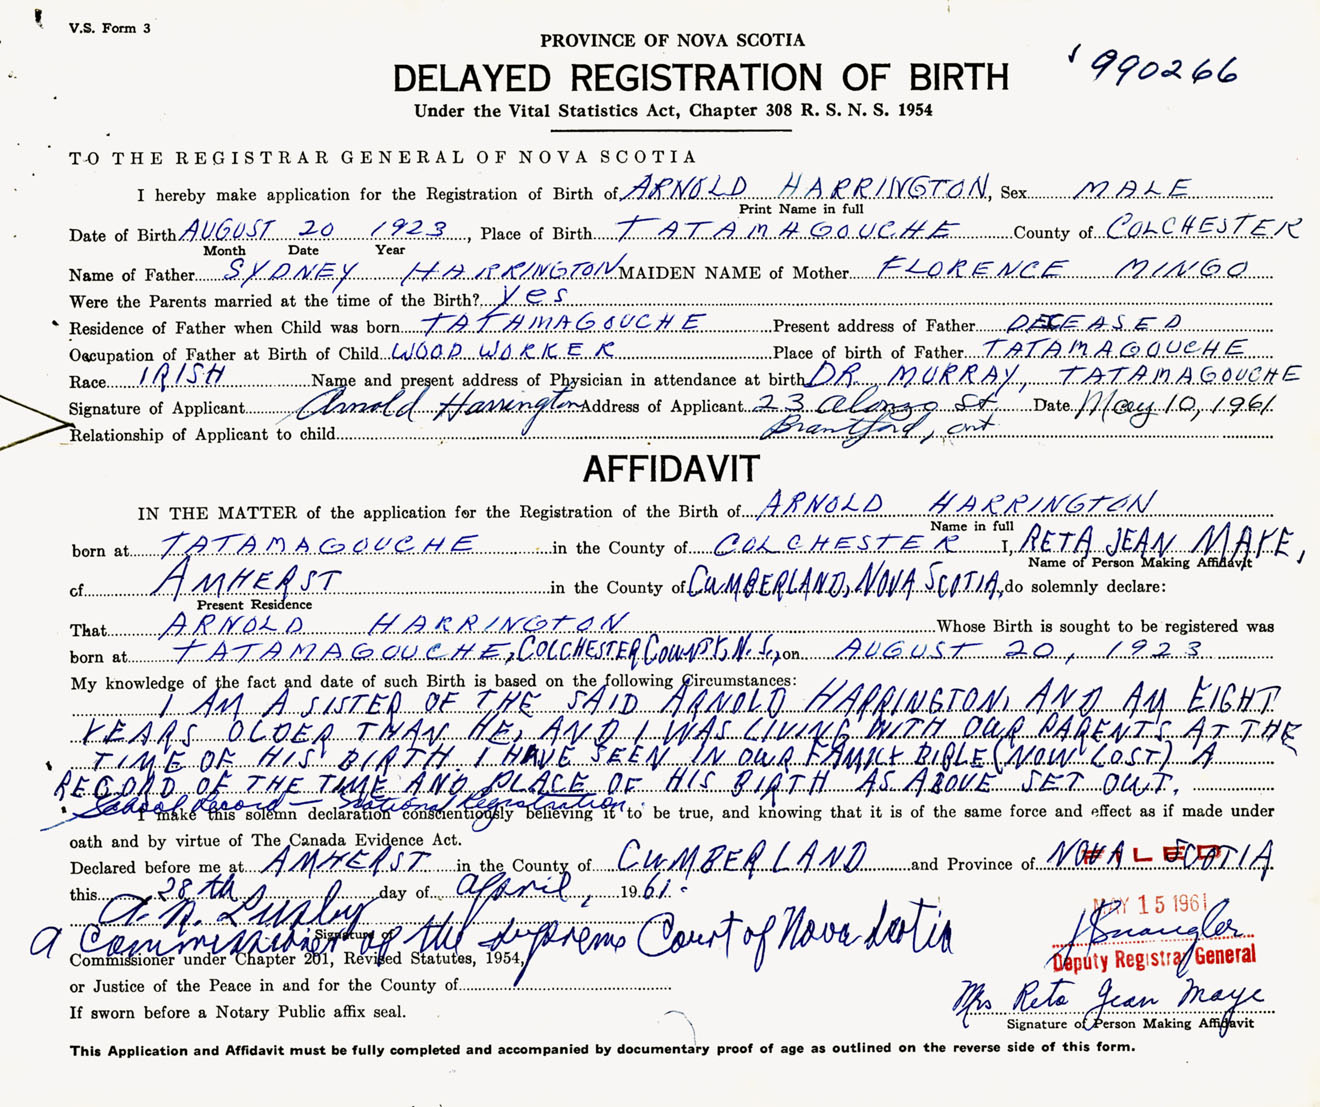 V.S. Form 3
PROVINCE OF NOVA SCOTIA
DELAYED REGISTRATION OF BIRTH
990266
Under the Vital Statistics Act, Chapter 308 R. S. N. S. 1954
TO THE REGISTRAR GENERAL OF NOVA SCOTIA
I hereby make application for the Registration of Birth of ARNOLD HARRINGTON, Sex MALE
Print Name in full
Date of Birth AUGUST 20 1923, Place of Birth TATAMAGOUCHE County of COLCHESTER
Month Date Year
Name of Father SYDNEY HARRINGTON MAIDEN NAME of Mother FLORENCE MINGO
Were the Parents married at the time of the Birth? yes
Residence of Father when Child was born TATAMAGOUCHE Present address of Father DECEASED
Occupation of Father at Birth of Child WOOD WORKER Place of birth of Father TATAMAGOUCHE
Race IRISH Name and present address of Physician in attendance at birth DR. MURRAY, TATAMAGOUCHE
Signature of Applicant Arnold Harrington Address of Applicant 23 Alonzo St. Date May 10, 1961
Relationship of Applicant to child Brantford, Ont
AFFIDAVIT
IN THE MATTER of the application for the Registration of the Birth of ARNOLD HARRINGTON
Name in full
born at TATAMAGOUCHE in the County of COLCHESTER I, RETA JEAN MAYE,
Name of Person Making Affidavit
of AMHERST in the County of CUMBERLAND, NOVA SCOTIA, do solemnly declare:
Present Residence
That ARNOLD HARRINGTON Whose Birth is sought to be registered was
born at TATAMAGOUCHE, COLCHESTER COUNTY, N.S., on AUGUST 20, 1923
My knowledge of the fact and date of such Birth is based on the following Circumstances:
I AM A SISTER OF THE SAID ARNOLD HARRINGTON, AND AM EIGHT
YEARS OLDER THAN HE, AND I WAS LIVING WITH OUR PARENTS AT THE
TIME OF HIS BIRTH. I HAVE SEEN IN OUR FAMILY BIBLE (NOW LOST) A
RECORD OF THE TIME AND PLACE OF HIS BIRTH AS ABOVE SET OUT.
School Record — National Registration.
I make this solemn declaration conscientiously believing it to be true, and knowing that it is of the same force and effect as if made under
oath and by virtue of The Canada Evidence Act.
Declared before me at AMHERST in the County of CUMBERLAND and Province of NOVA SCOTIA
FILED
this 28th day of April, 1961.
MAY 15 1961
A. N. Lusby
Signature of
a Commissioner of the Supreme Court of Nova Scotia
Commissioner under Chapter 201, Revised Statutes, 1954,
Deputy Registrar General
or Justice of the Peace in and for the County of
Mrs Reta Jean Maye
If sworn before a Notary Public affix seal.
Signature of Person Making Affidavit
This Application and Affidavit must be fully completed and accompanied by documentary proof of age as outlined on the reverse side of this form.